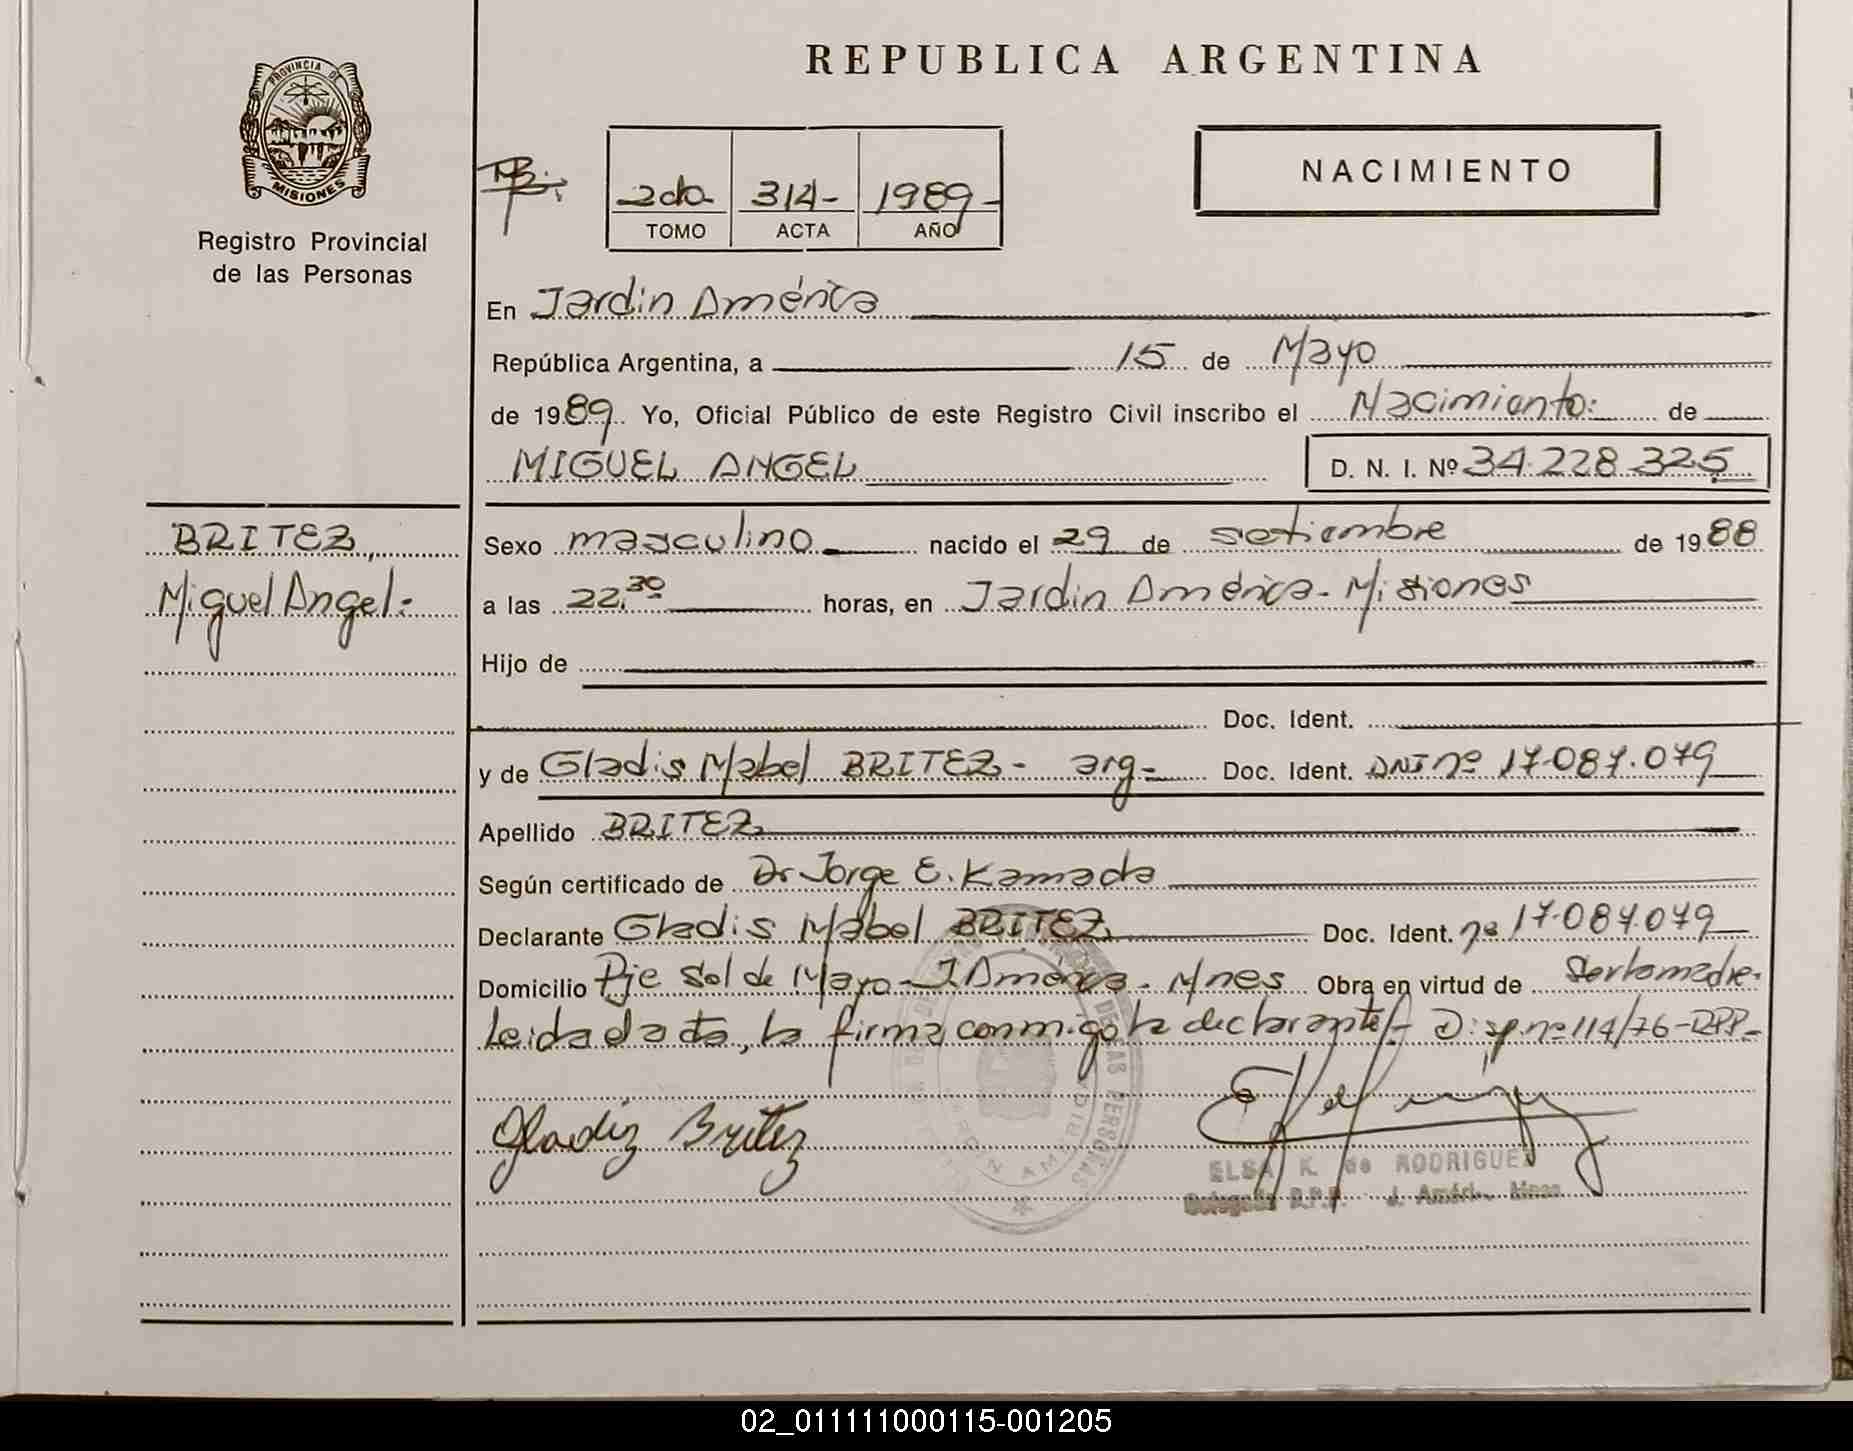 REPUBLICA ARGENTINA
PROVINCIA DE
MISIONES
Registro Provincial
de las Personas
2do. 314- 1989-
TOMO ACTA AÑO
NACIMIENTO
En Jardin América
República Argentina, a 15 de Mayo
de 1989. Yo, Oficial Público de este Registro Civil inscribo el Nacimiento: de
MIGUEL ANGEL D. N. I. Nº 34.228.325
BRITEZ,
Miguel Angel:
Sexo masculino nacido el 29 de setiembre de 1988
a las 22,30 horas, en Jardin América - Misiones
Hijo de
Doc. Ident.
y de Gladis Mabel BRITEZ - arg- Doc. Ident. DNI nº 17.087.079
Apellido BRITEZ
Según certificado de Dr Jorge E. Kamada
Declarante Gladis Mabel BRITEZ, Doc. Ident. nº 17.087.079
Domicilio Pje Sol de Mayo - J. América - Mnes Obra en virtud de
Leida el acta, la firma conmigo la declarante/- Disp. nº 114/76-RPP-
Gladiz Britez
ELSA K. de RODRIGUEZ
Delegada R.P.P. J. Améri. Mnes
DE LAS PERSONAS
JARDIN AMERICA
02_011111000115-001205